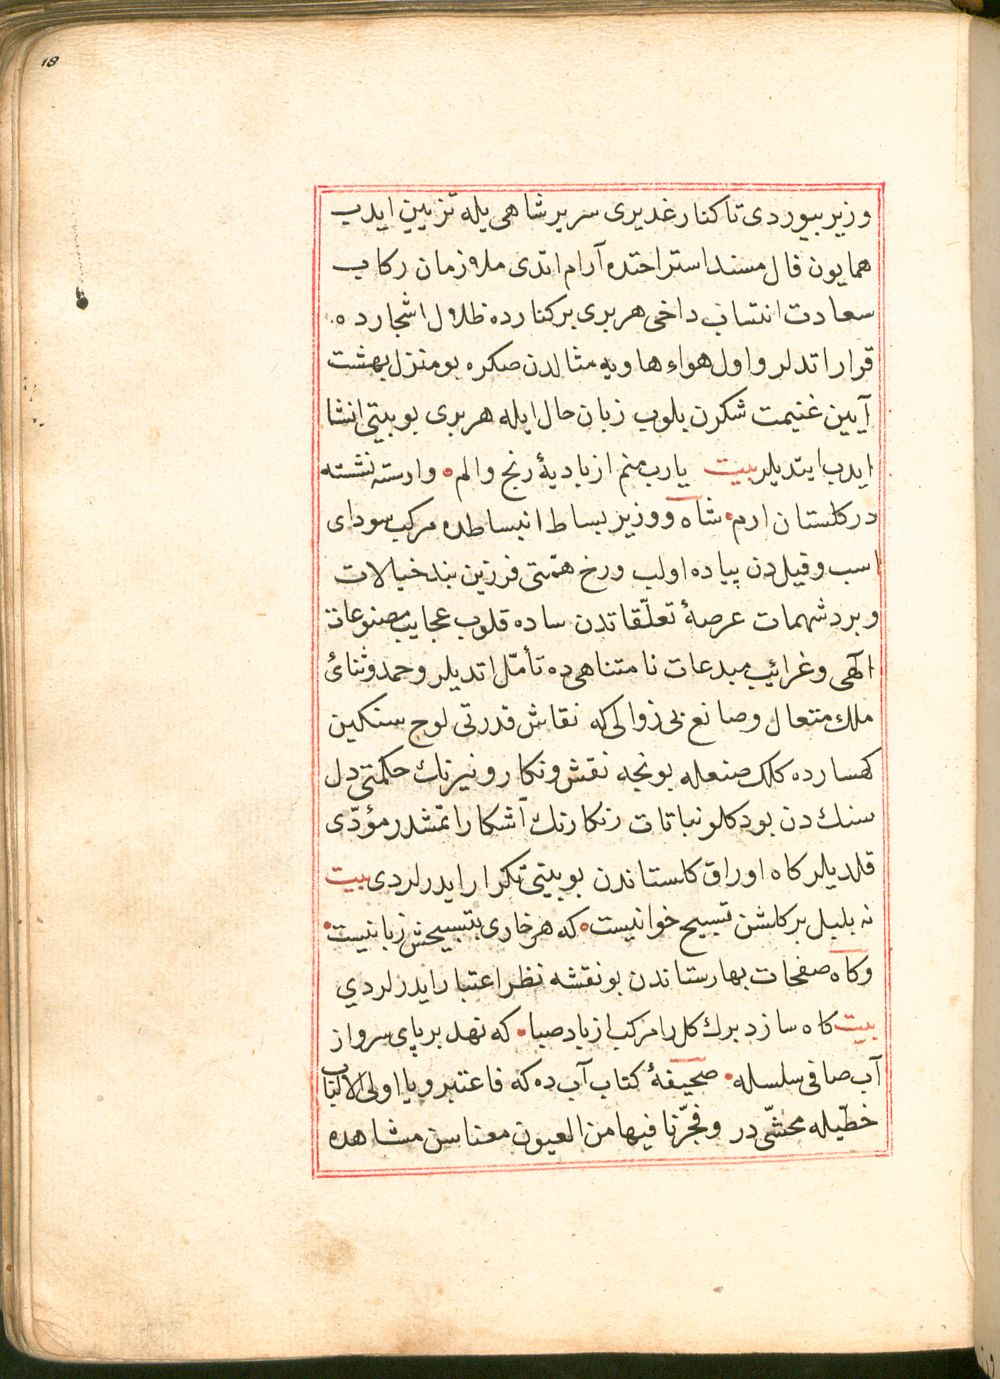 18
وزیر بیوردی تا کنار غدیری سریر شاهی یله تزیین ایدب
همایون فال مسند استراحتده آرام اتدی ملازمان رکاب
سعادت انتساب داخی هر بری بر کنارده ظلال اشجارده
قرار اتدلر و اول هواء هاویه مثالدن صکره بو منزل بهشت
آیین غنیمت شکرن یلوب زبان حال ایله هر بری بو بیتی انشا
ایدب ایتدیلر بیت یارب منم از بادیهٔ رنج و الم وارسته نشسته
در کلستان ارم شاه و وزیر بساط انبساطده مرکب سودای
اسب و فیلدن پیاده اولب و رخ همتی فرزین بند خیالات
و برد شهمات عرصهٔ تعلّقاتدن ساده قلوب عجایب مصنوعات
الهی و غرائب مبدعات نامتناهی ده تأمّل اتدیلر و حمد و ثنائ
ملك متعال و صانع بی زوالی که نقاش قدرتی لوح سنکین
کهسارده کلك صنعله بونجه نقش و نکار و نیرنك حکمتی دل
سنك دن بو دکلو نباتات رنکارنك آشکار اتمشدر مؤدّی
قلدیلر کاه اوراق کلستاندن بو بیتی تکرار ایدرلردی بیت
نه بلبل بر کلشن تسبیح خوانیست که هر خاری بتسبیحش زبانیست
و کاه صفحات بهارستاندن بو نقشه نظر اعتبار ایدرلردی
بیت کاه سازد برك کل را مرکب از باد صبا که نهد بر پای سرو از
آب صافی سلسله صحیفهٔ کتاب آب ده که فاعتبروا یا اولی الالباب
خطّیله محشّی در و فجّرنا فیها من العیون معناسن مشاهده